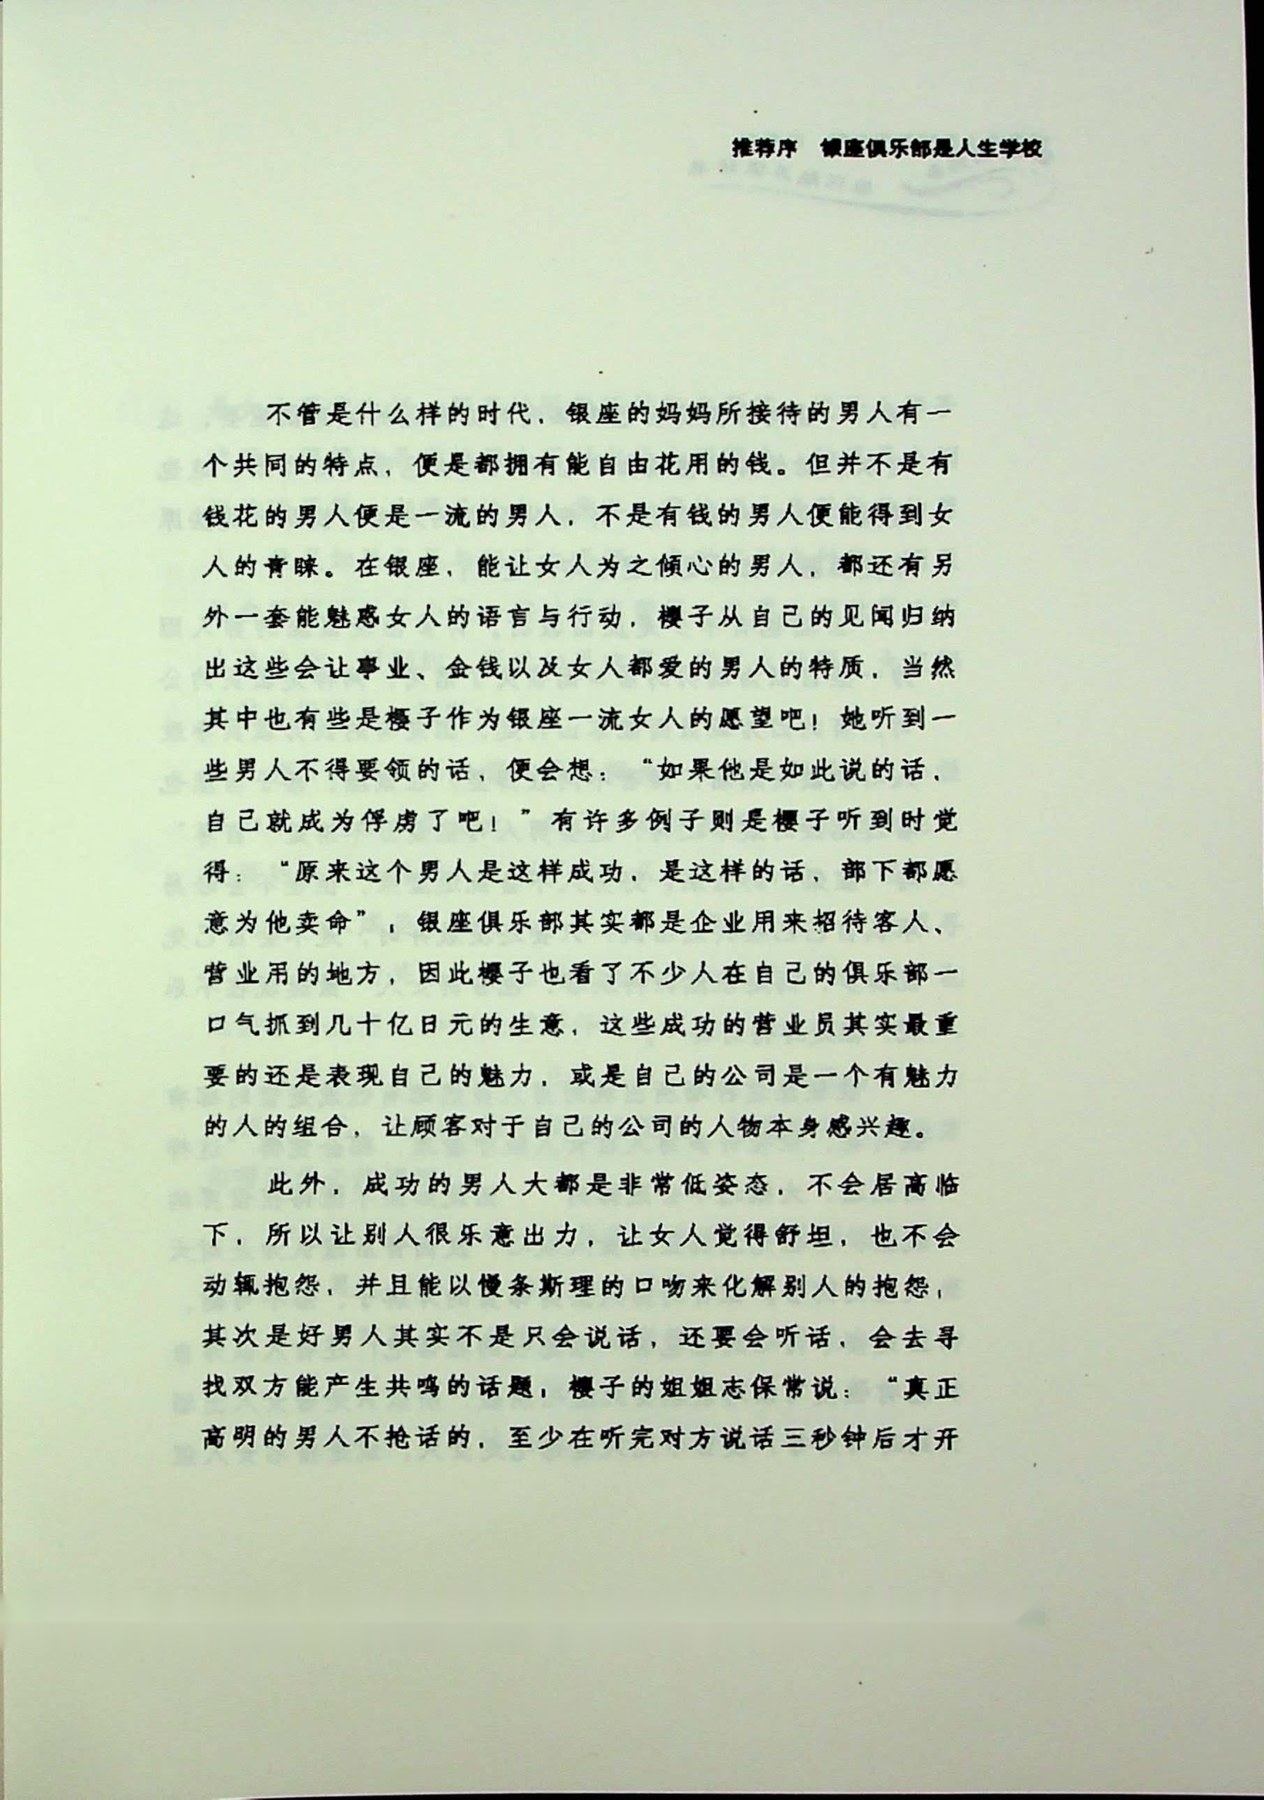 推荐序　银座俱乐部是人生学校
不管是什么样的时代，银座的妈妈所接待的男人有一
个共同的特点，便是都拥有能自由花用的钱。但并不是有
钱花的男人便是一流的男人，不是有钱的男人便能得到女
人的青睐。在银座，能让女人为之倾心的男人，都还有另
外一套能魅惑女人的语言与行动，樱子从自己的见闻归纳
出这些会让事业、金钱以及女人都爱的男人的特质，当然
其中也有些是樱子作为银座一流女人的愿望吧！她听到一
些男人不得要领的话，便会想：“如果他是如此说的话，
自己就成为俘虏了吧！”有许多例子则是樱子听到时觉
得：“原来这个男人是这样成功，是这样的话，部下都愿
意为他卖命”；银座俱乐部其实都是企业用来招待客人、
营业用的地方，因此樱子也看了不少人在自己的俱乐部一
口气抓到几十亿日元的生意，这些成功的营业员其实最重
要的还是表现自己的魅力，或是自己的公司是一个有魅力
的人的组合，让顾客对于自己的公司的人物本身感兴趣。
此外，成功的男人大都是非常低姿态，不会居高临
下，所以让别人很乐意出力，让女人觉得舒坦，也不会
动辄抱怨，并且能以慢条斯理的口吻来化解别人的抱怨；
其次是好男人其实不是只会说话，还要会听话，会去寻
找双方能产生共鸣的话题；樱子的姐姐志保常说：“真正
高明的男人不抢话的，至少在听完对方说话三秒钟后才开